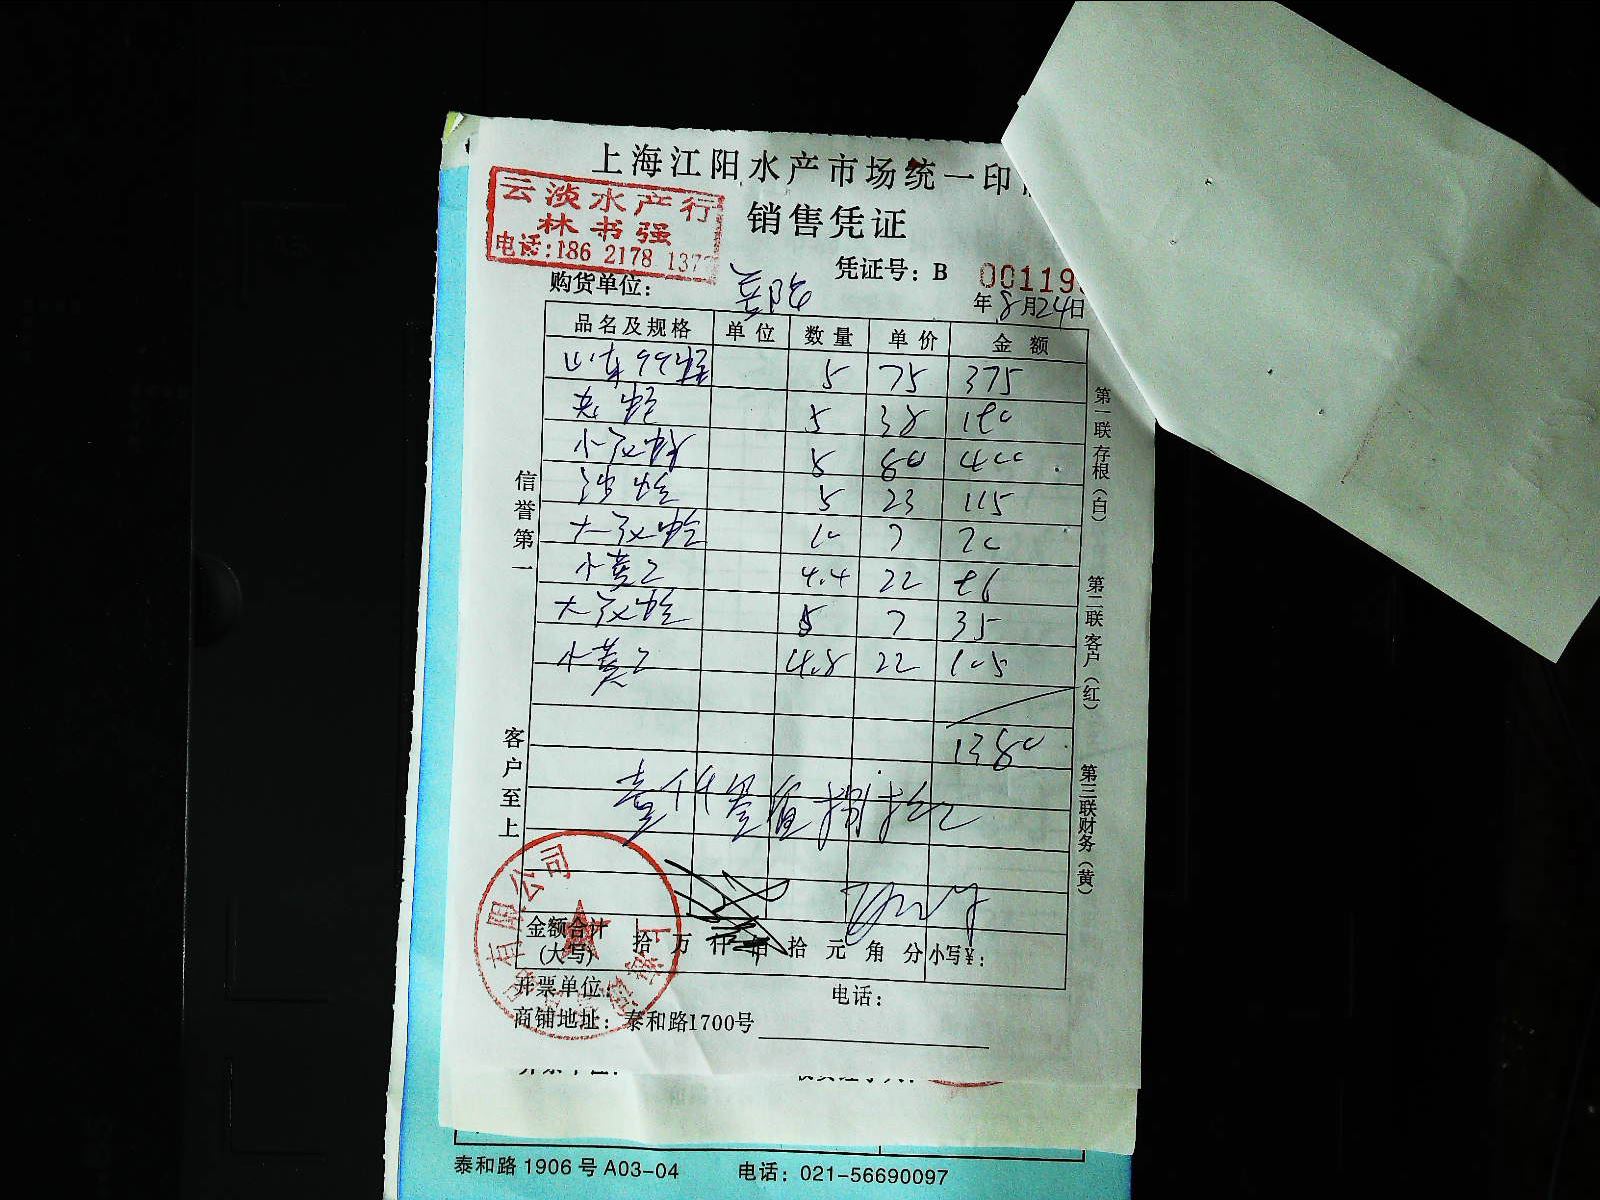 上海江阳水产市场统一印
云淡水产行
林书强
电话:186 2178 137
销售凭证
凭证号：B 00119
购货单位：
年8月24日
品名及规格 单位 数量 单价 金额
山东99蛏 5 75 375
5 38 190
小 5 80 400
5 23 115
大 10 7 70
小黄 4.4 22 96
大 5 7 35
小黄 4.8 22 105
1380
壹仟叁佰捌拾元
信誉第一
客户至上
第一联存根（白）
第二联客户（红）
第三联财务（黄）
有限公司
金额合计
(大写)
拾 万 仟 佰 拾 元 角 分 小写¥：
开票单位：
电话：
商铺地址：泰和路1700号
泰和路1906号A03-04 电话：021-56690097